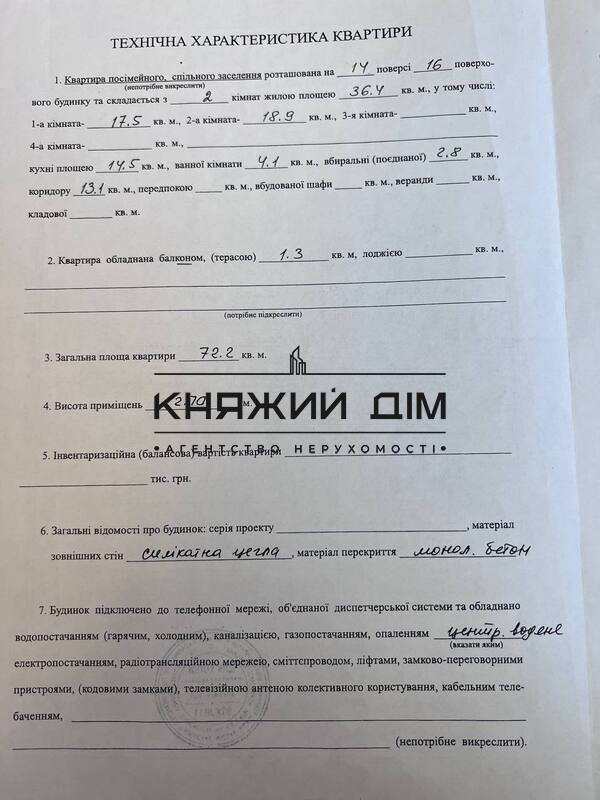 ТЕХНІЧНА ХАРАКТЕРИСТИКА КВАРТИРИ
1. Квартира посімейного, спільного заселення розташована на 14 поверсі 16 поверхо-
(непотрібне викреслити)
вого будинку та складається з 2 кімнат жилою площею 36.4 кв. м., у тому числі:
1-а кімната- 17.5 кв. м., 2-а кімната- 18.9 кв. м., 3-я кімната- кв. м.,
4-а кімната- кв. м.,
кухні площею 14.5 кв. м., ванної кімнати 4.1 кв. м., вбиральні (поєднаної) 2.8 кв. м.,
коридору 13.1 кв. м., передпокою кв. м., вбудованої шафи кв. м., веранди кв. м.,
кладової кв. м.
2. Квартира обладнана балконом, (терасою) 1.3 кв. м, лоджією кв. м.,
(потрібне підкреслити)
3. Загальна площа квартири 72.2 кв. м.
4. Висота приміщень м.
КНЯЖИЙ ДІМ
•АГЕНТСТВО НЕРУХОМОСТІ•
5. Інвентаризаційна (балансова) вартість квартири
тис. грн.
6. Загальні відомості про будинок: серія проекту , матеріал
зовнішних стін силікатна цегла , матеріал перекриття монол. бетон
7. Будинок підключено до телефонної мережі, об'єднаної диспетчерської системи та обладнано
водопостачанням (гарячим, холодним), каналізацією, газопостачанням, опаленням центр. водяне
(вказати яким)
електропостачанням, радіотрансляційною мережею, сміттєпроводом, ліфтами, замково-переговорними
пристроями, (кодовими замками), телевізійною антеною колективного користування, кабельним теле-
баченням,
(непотрібне викреслити).